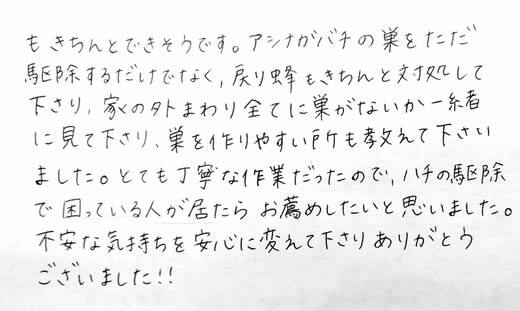 もきちんとできそうです。アシナガバチの巣をただ
駆除するだけでなく、戻り蜂もきちんと対処して
下さり、家の外まわり全てに巣がないか一緒
に見て下さり、巣を作りやすい所も教えて下さい
ました。とても丁寧な作業だったので、ハチの駆除
で困っている人が居たらお薦めしたいと思いました。
不安な気持ちを安心に変えて下さりありがとう
ございました!!